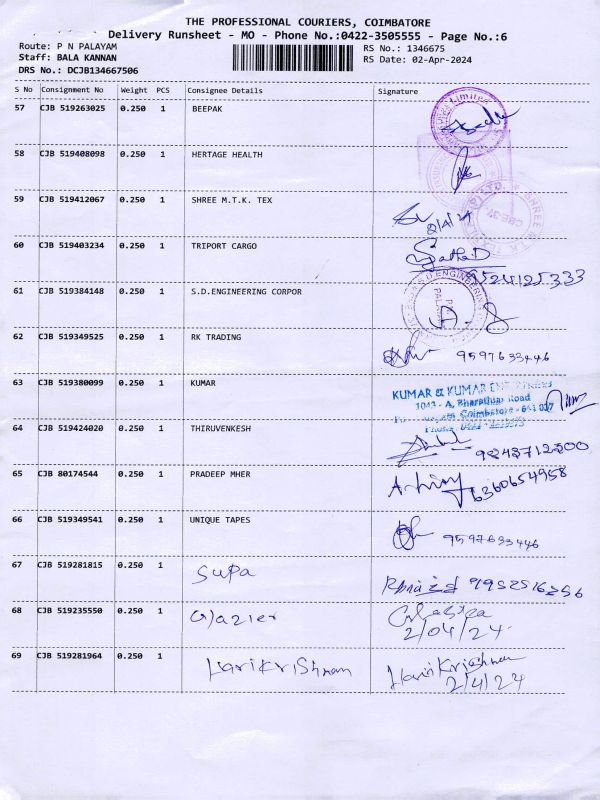 THE PROFESSIONAL COURIERS, COIMBATORE
Delivery Runsheet - MO - Phone No.:0422-3505555 - Page No.:6
Route: P N PALAYAM RS No.: 1346675
Staff: BALA KANNAN RS Date: 02-Apr-2024
DRS No.: DCJB134667506
S No Consignment No Weight PCS Consignee Details Signature
57 CJB 519263025 0.250 1 BEEPAK
Limited
58 CJB 519408098 0.250 1 HERTAGE HEALTH
59 CJB 519412067 0.250 1 SHREE M.T.K. TEX
2/4/24
60 CJB 519403234 0.250 1 TRIPORT CARGO
9524125333
61 CJB 519384148 0.250 1 S.D.ENGINEERING CORPOR
S.D. ENGINEERING
62 CJB 519349525 0.250 1 RK TRADING
9597633446
63 CJB 519380099 0.250 1 KUMAR
KUMAR & KUMAR
1043 - A, Bharathiar Road
Coimbatore - 641 037
Phone
64 CJB 519424020 0.250 1 THIRUVENKESH
65 CJB 80174544 0.250 1 PRADEEP MHER
6360654958
66 CJB 519349541 0.250 1 UNIQUE TAPES
9597633446
67 CJB 519281815 0.250 1 Supa
68 CJB 519235550 0.250 1 Glazier
2/04/24
69 CJB 519281964 0.250 1 Harikrishnan Harikrishnan
2/4/24